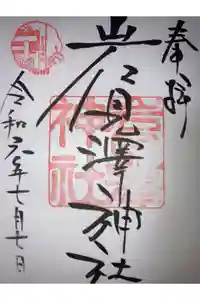 奉拝
岩見澤神社
令和元年七月七日